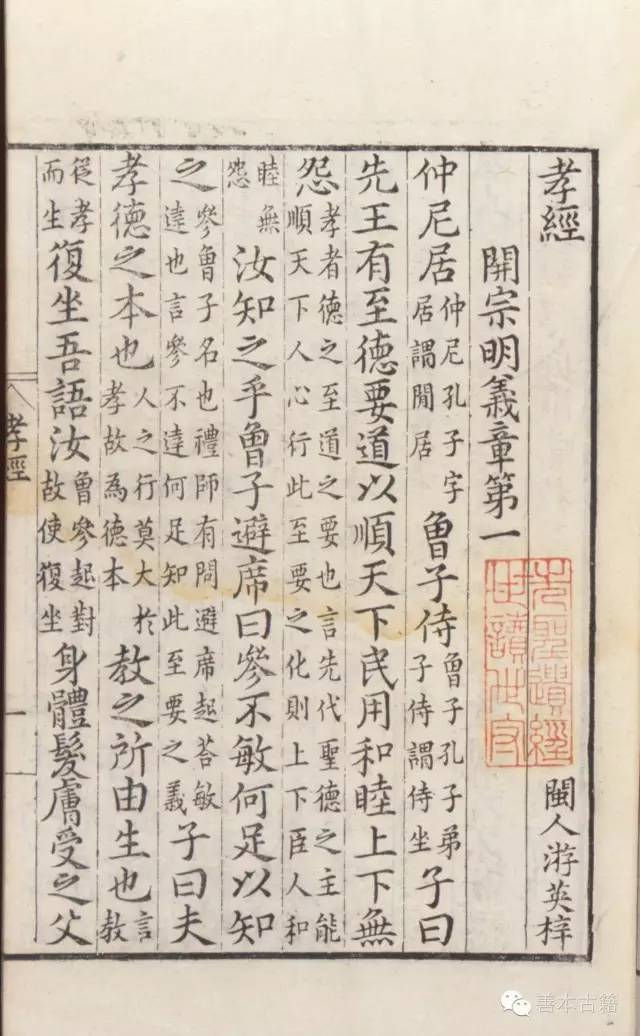 孝經
閩人游英梓
先聖遺經
開宗明義章第一
仲尼居仲尼孔子字居謂閒居曾子侍曾子孔子弟子侍謂侍坐子曰
先王有至德要道以順天下民用和睦上下無
怨孝者德之至道之要也言先代聖德之主能順天下人心行此至要之化則上下臣人和
睦無怨汝知之乎曾子避席曰參不敏何足以知
之參曾子名也禮師有問避席起荅敏達也言參不達何足知此至要之義子曰夫
孝德之本也人之行莫大於孝故為德本教之所由生也言教
從孝而生復坐吾語汝曾參起對故使復坐身體髮膚受之父
孝經
一
善本古籍